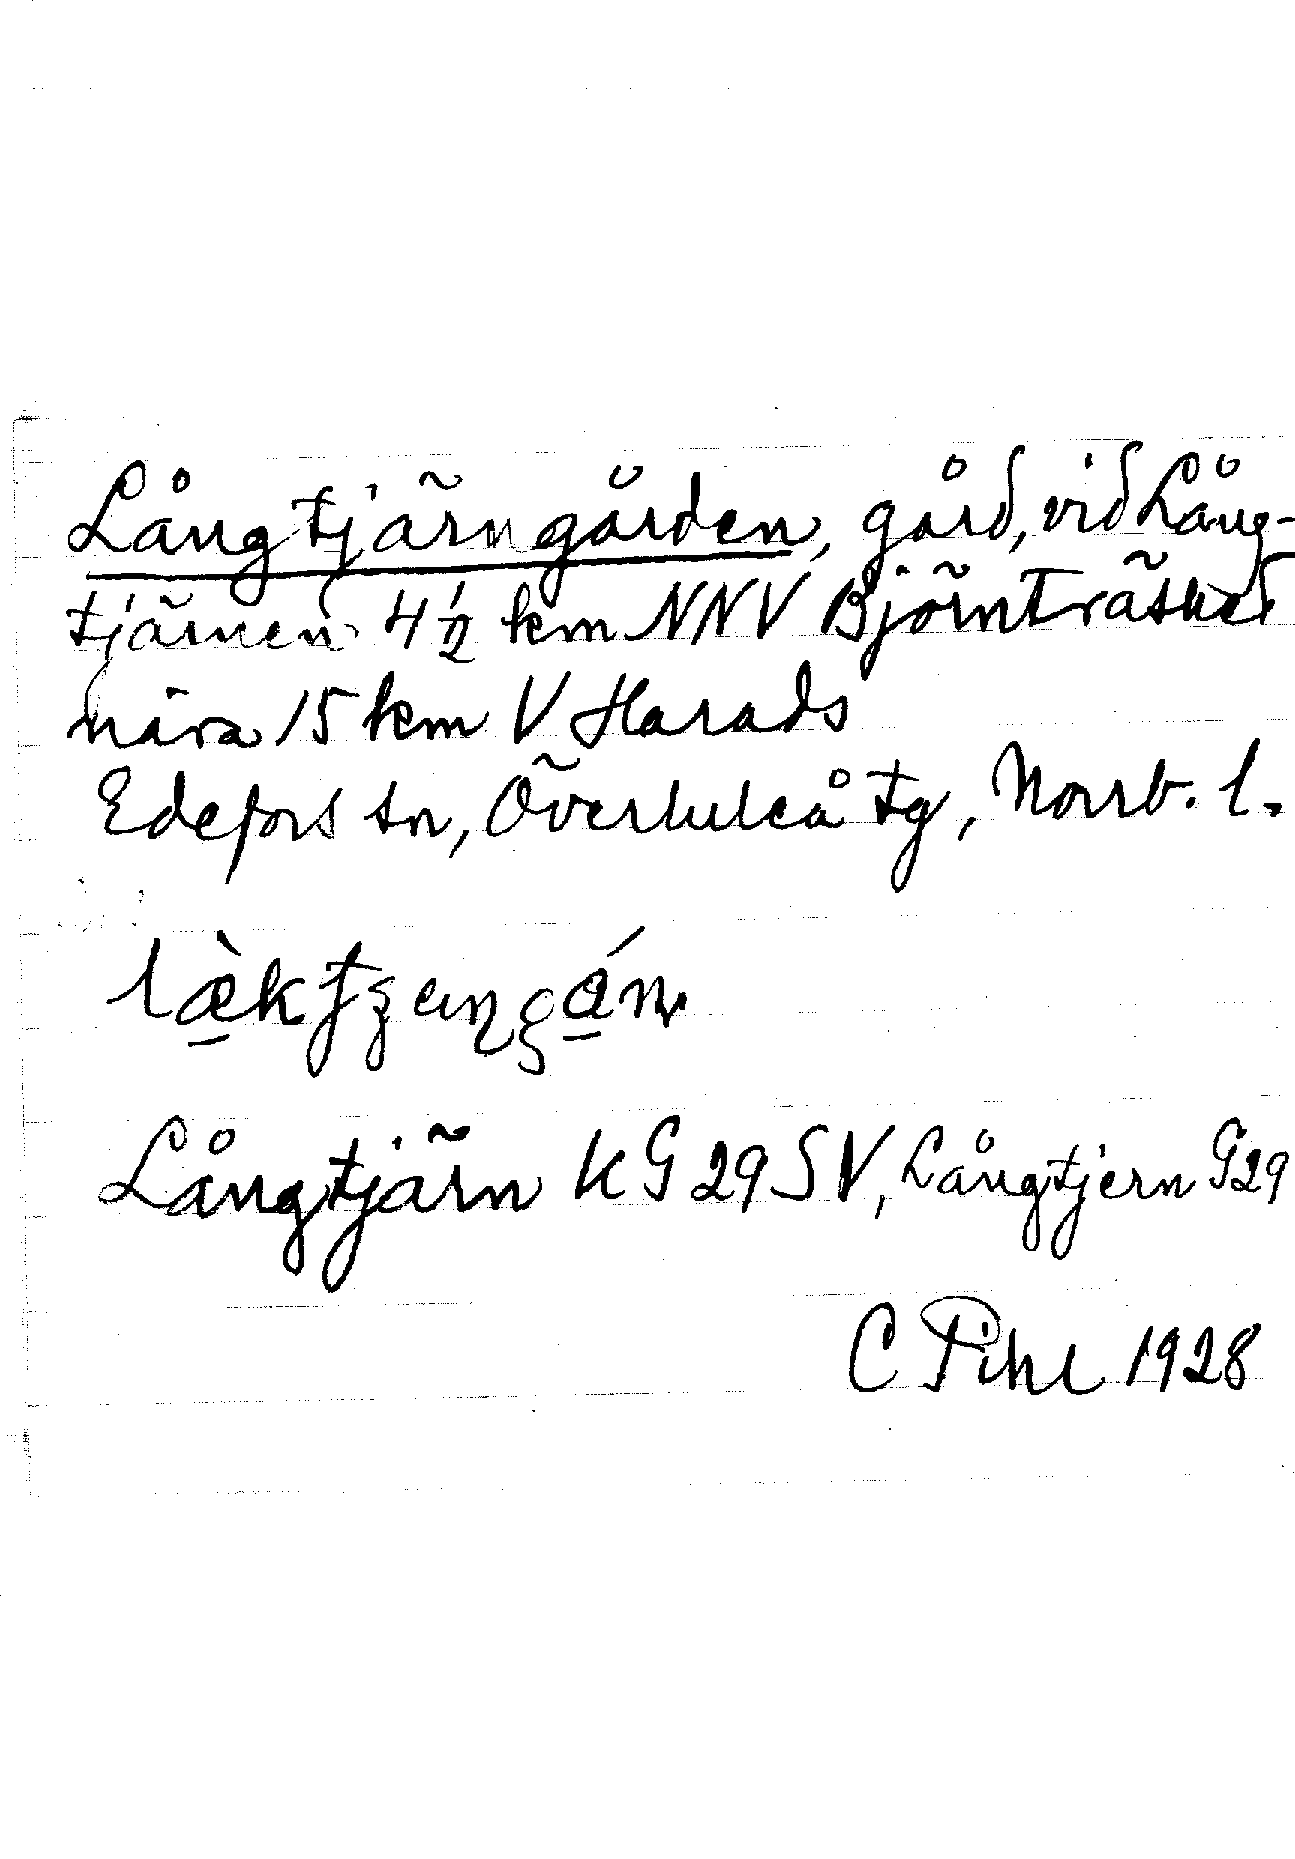 Långtjärngården, gård, vid Lång-
tjärnen 4½ km NNV Björnträsket
nära 15 km V Harads
Edefors sn, Överluleå tg, Norrb. l.
Långtjärn KG 29 SV, Långtjern G29
C Pihl 1928